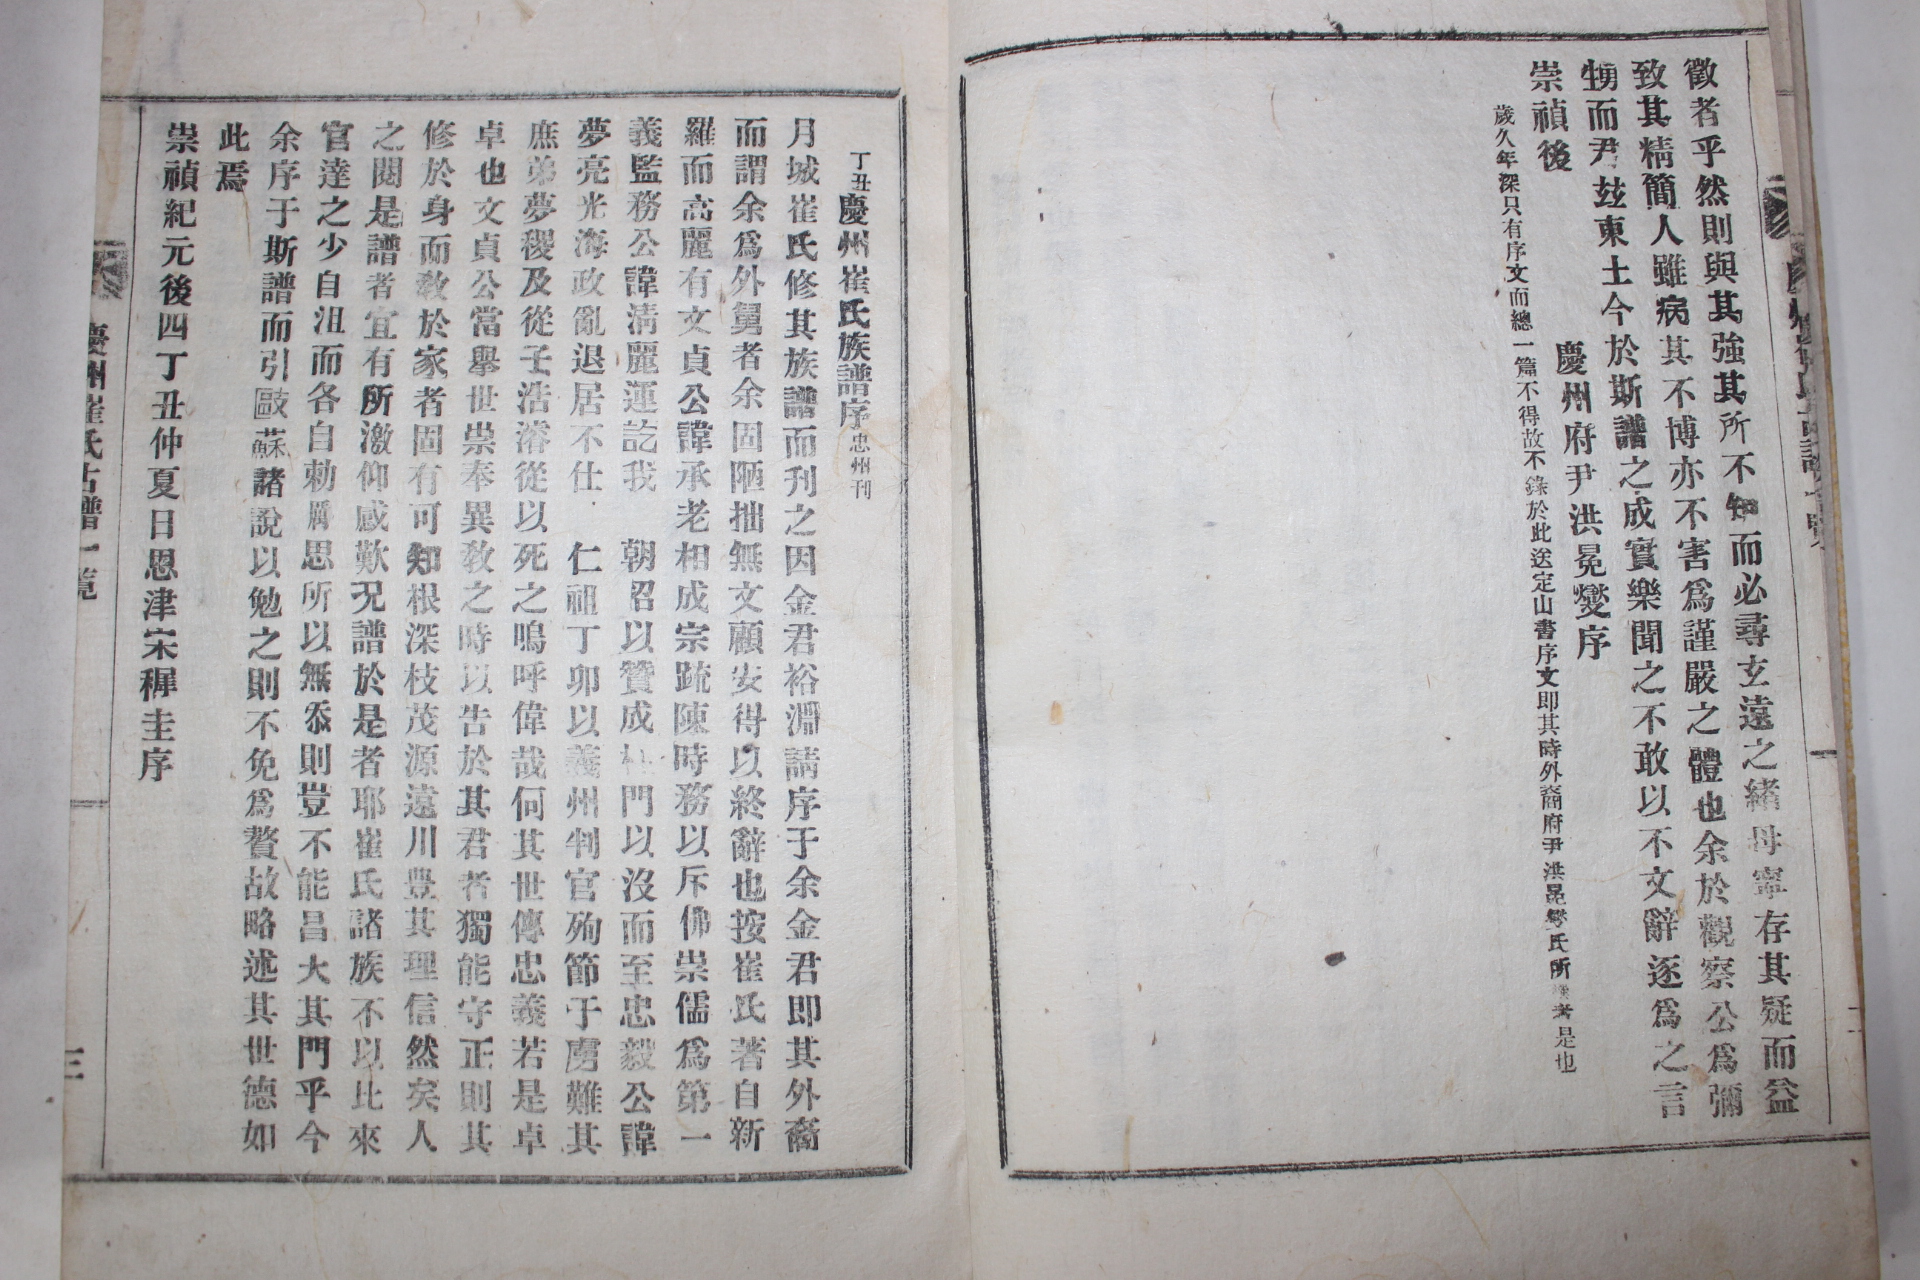 徵者乎然則與其強其所不知而必尋玄遠之緖毋寧存其疑而益
致其精簡人雖病其不博亦不害爲謹嚴之體也余於觀察公爲彌
甥而尹玆東土今於斯譜之成實樂聞之不敢以不文辭逐爲之言
崇禎後
慶州府尹洪冕燮序
歲久年深只有序文而總一篇不得故不錄於此送定山書序文即其時外裔府尹洪冕燮氏所 考是也
丁丑慶州崔氏族譜序忠州刊
月城崔氏修其族譜而刊之因金君裕淵請序于余金君即其外裔
而謂余爲外舅者余固陋拙無文顧安得以終辭也按崔氏著自新
羅而高麗有文貞公諱承老相成宗䟽陳時務以斥佛崇儒爲第一
義監務公諱淸麗運訖我 朝招以贊成杜門以沒而至忠毅公諱
夢亮光海政亂退居不仕 仁祖丁卯以義州判官殉節于虜難其
庶弟夢稷及從子浩溶從以死之嗚呼偉哉何其世傳忠義若是卓
卓也文貞公當擧世崇奉異敎之時以告於其君者獨能守正則其
修於身而敎於家者固有可知根深枝茂源遠川豊其理信然矣人
之閱是譜者宜有所激仰感歎況譜於是者耶崔氏諸族不以比來
官達之少自沮而各自勅厲思所以無忝則豈不能昌大其門乎今
余序于斯譜而引歐蘇諸說以勉之則不免爲贅故略述其世德如
此焉
崇禎紀元後四丁丑仲夏日恩津宋穉圭序
慶州崔氏古譜一覽
三